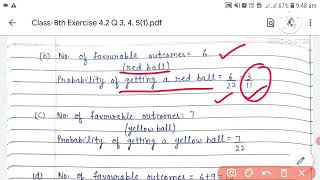 9:48 am
Class-8th Exercise 4.2 Q 3, 4, 5(1).pdf
(b) No. of favourable outcomes = 6
(red ball)
Probability of getting a red ball = 6/22 = 3/11
(c) No. of favourable outcomes = 7
(yellow ball)
Probability of getting a yellow ball = 7/22
(d) No. of favourable outcomes = 6+9+